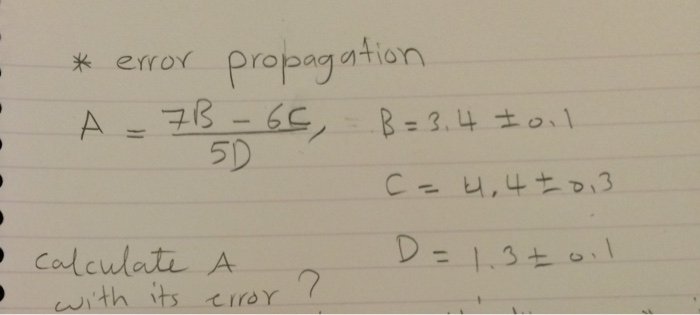 * error propagation
A = 7B - 6C / 5D, B = 3.4 ± 0.1
C = 4.4 ± 0.3
D = 1.3 ± 0.1
calculate A
with its error ?